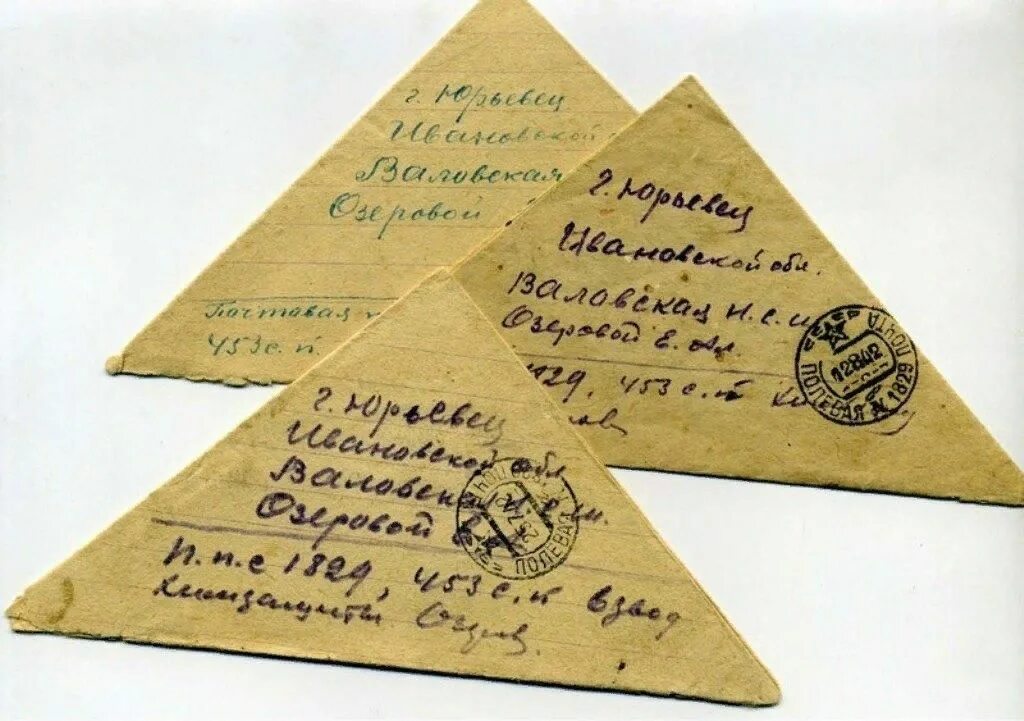 г. Юрьевец
Ивановской
Валовская
Озеровой
Почтовая
453 с. п.
г. Юрьевец
Ивановской обл.
Валовская н.с.ш.
Озеровой Е. Ал.
1829, 453 с. п
ПОЛЕВАЯ ПОЧТА
12 8 42
1829
г. Юрьевец
Ивановской обл
Валовская н.с.ш.
Озеровой
П.п.с 1829, 453 с. п взвод
Химзащиты Озеров.
ПОЛЕВАЯ ПОЧТА